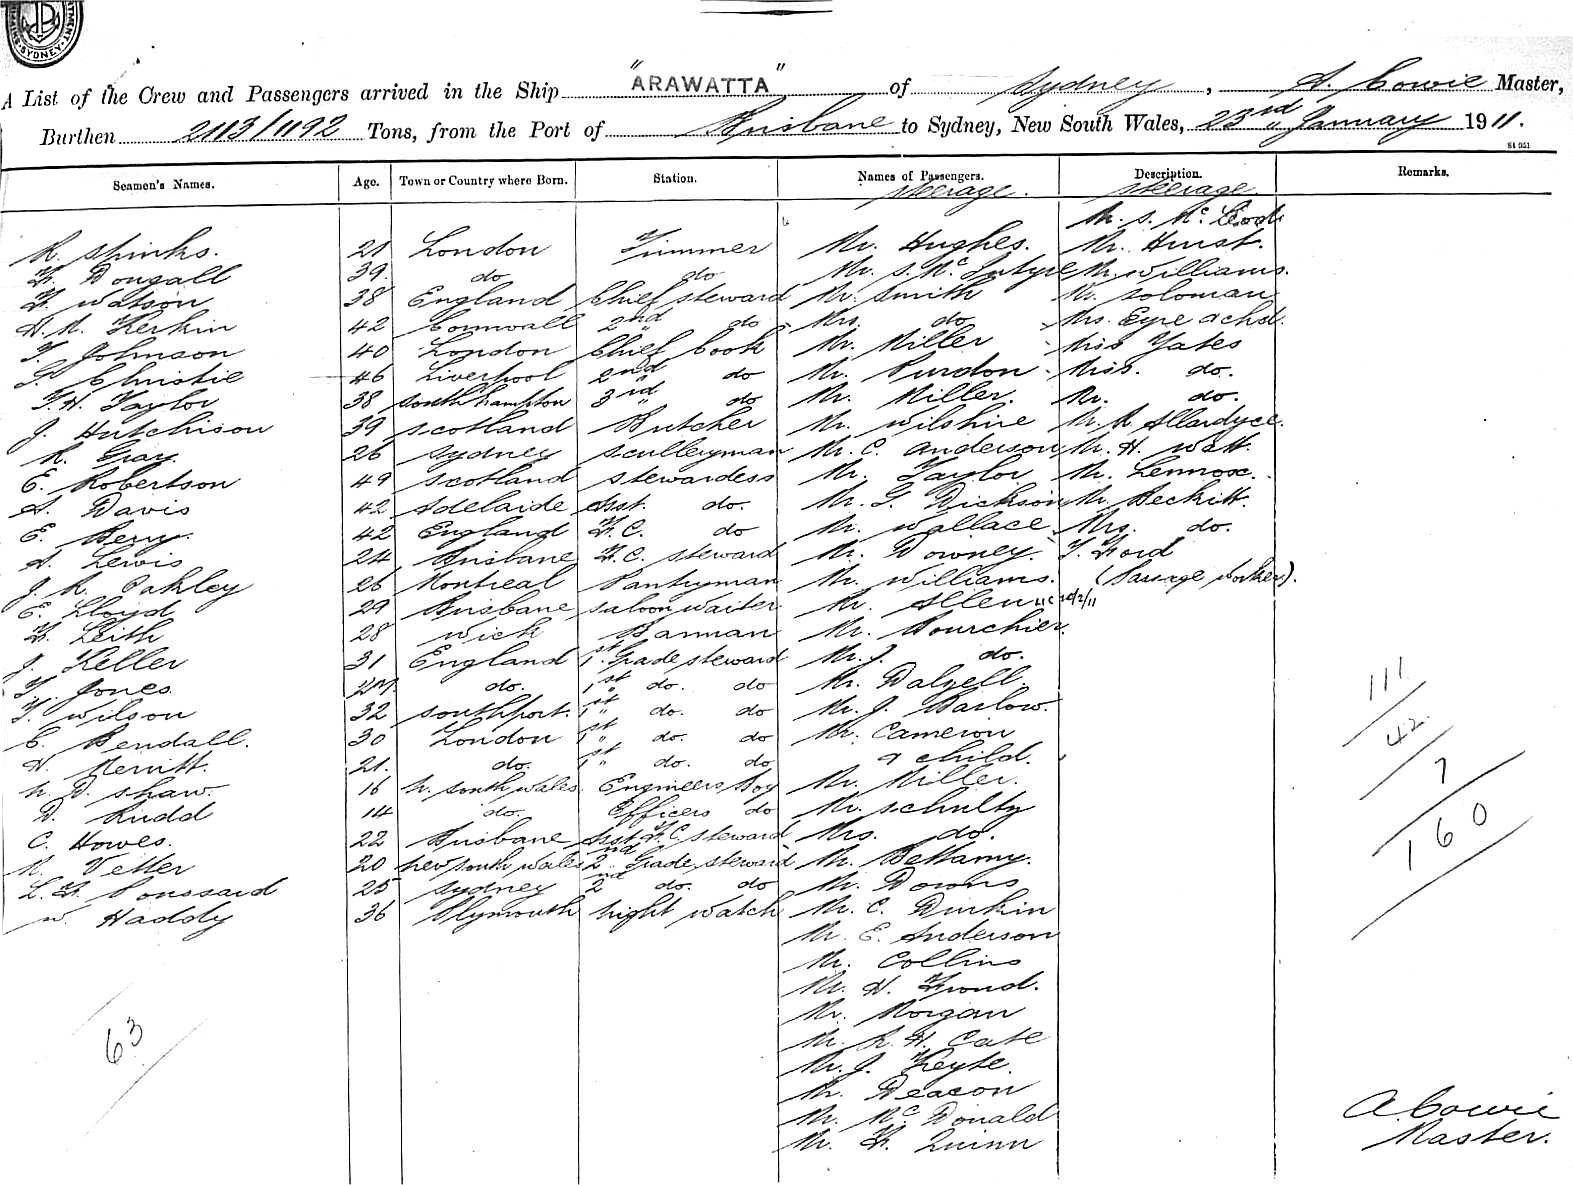 SYDNEY
A List of the Crew and Passengers arrived in the Ship "ARAWATTA" of Sydney, A. Cowie Master,
Burthen 2113/1192 Tons, from the Port of Brisbane to Sydney, New South Wales, 23rd January 1911.
Seamen's Names. Age. Town or Country where Born. Station. Names of Passengers. Description. Remarks.
Steerage. Steerage
Mr. S. McLeod
R. Spinks. 21 London Trimmer Mr. Hughes. Mr. Hurst.
F. Dougall 39. do do Mr. S. McIntyre Mr. Williams.
F. Watson 38 England Chief Steward Mr. Smith Mr. Soloman
H. R. Kerkin 42 Cornwall 2nd do Mrs. do Mrs. Eyre & chd.
T. Johnson 40 London Chief Cook Mr. Miller Miss Yates
P. Christie 46 Liverpool 2nd do Mr. Purdon Miss. do.
T. H. Taylor 38 Southhampton 3rd do Mr. Miller. Mr. do.
J. Hutchison 39 Scotland Butcher Mr. Wilshire Mr. R Allardyce.
R. Gray. 26 Sydney Sculleryman Mr. C. Anderson Mr. H. Watt.
E. Robertson 49 Scotland Stewardess Mr. Taylor Mr. Lennox.
A. Davis 42 Adelaide Asst. do. Mr. G. Dickson Mr. Beckitt.
E. Berry. 42 England F.C. do Mr. Wallace Mrs. do.
A. Lewis 24 Brisbane F.C. Steward Mr. Downey. T. Ford
J. R. Oakley 26 Montreal Pantryman Mr. Williams. (Passage Worker).
E. Lloyd 29 Brisbane Saloon Waiter Mr. Allen
F. Leith 28 Wick Barman Mr. Bourchier.
J. Keller 31 England 1st Grade Steward Mr. J. do.
T. Jones 27. do. 1st do. do Mr. Dalzell.
T. Wilson 32 Southport. 1st do. do Mr. J. Barlow.
C. Bendall. 30 London 1st do. do Mr. Cameron
H. Merritt. 21. do. 1st do. do & child.
N. D. Shaw. 16 N. South Wales Engineers Boy Mr. Miller.
D. Rudd 14 do. Officers do Mr. Schultz
C. Howes. 22 Brisbane Asst F.C. Steward Mrs. do.
R. Vetter 20 New South Wales 2nd Grade Steward Mr. Bellamy.
L. F. Poussard 25 Sydney 2nd do. do Mr. Downs
W. Haddy 36 Plymouth Night Watch Mr. C. Durkin
Mr. E. Anderson
Mr. Collins
Mr. H. Frond.
Mr. Morgan
Mr. R. H. Cate
Mr. J. Keyte.
Mr. Deacon
Mr. McDonald
Mr. F. Quinn
111
42
7
160
63
A. Cowie
Master.